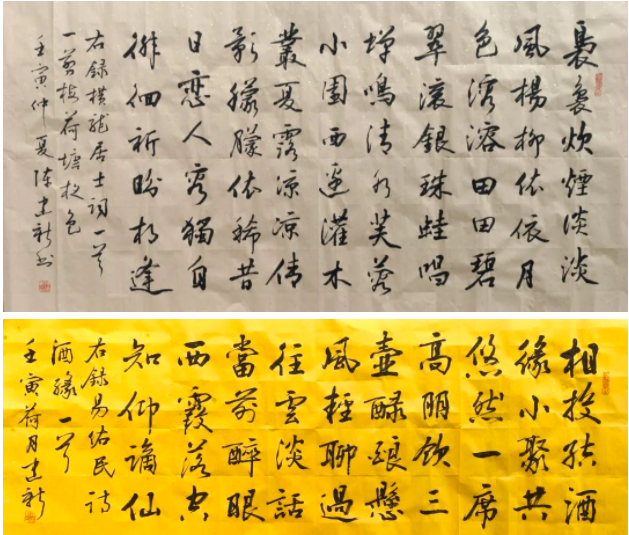 裊裊炊煙淡淡
風楊柳依依月
色溶溶田田碧
翠滾銀珠蛙唱
蟬鳴清水芙蓉
小園西邊灌木
叢夏露涼涼倩
影朦朦依稀昔
日戀人容獨自
徘徊祈盼相逢
右録橫龍居士詞一首
一剪梅荷塘夜色
壬寅仲夏陳建新書
相投結酒
緣小聚共
悠然一席
高朋飲三
壺醁懸
風輕聊過
往雲淡話
當前醉眼
西霞落
知仰謫仙
右録易佑民詩
酒緣一首
壬寅荷月建新